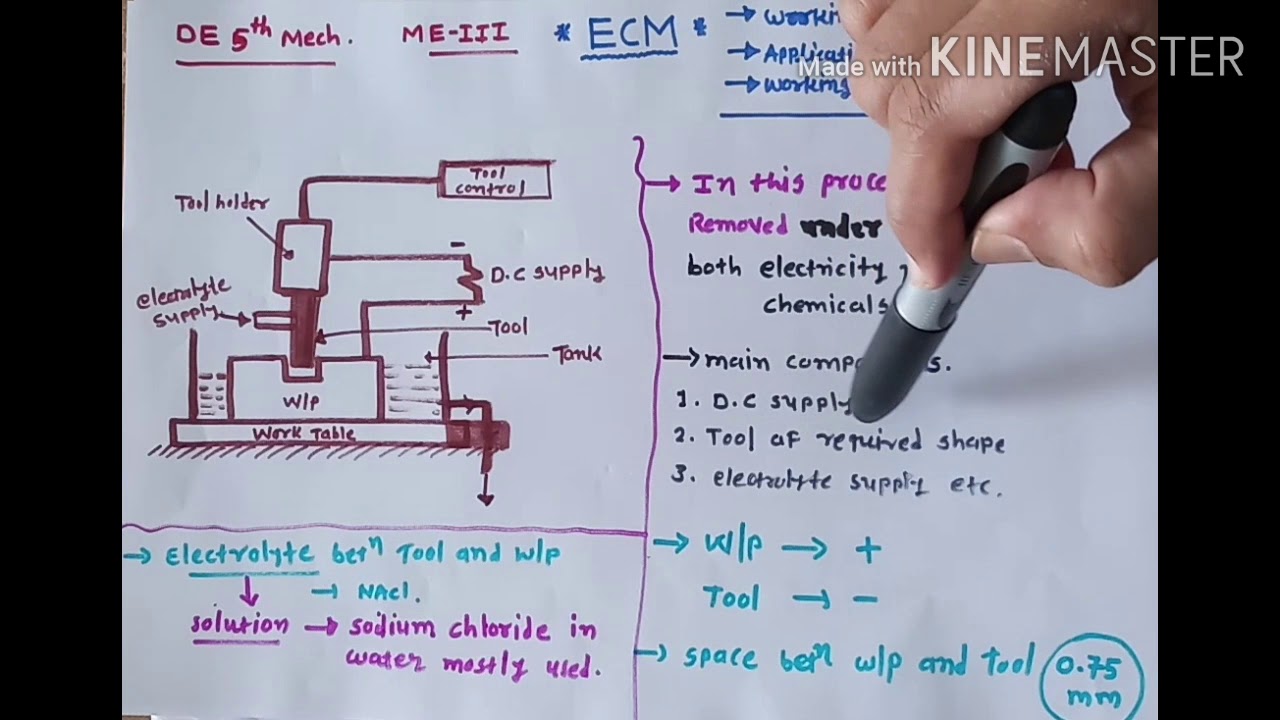 DE 5th Mech. ME-III * ECM *
→ Working
→ Applicati
→ Working
Made with KINEMASTER
Tool control
Tool holder
-
D.C supply
+
electrolyte supply
Tool
Tank
W/P
Work Table
→ In this proce
Removed under
both electricity
chemicals
→ main comp s.
1. D.C supply
2. Tool af required shape
3. electrolyte supply etc.
→ W/P → +
Tool → -
→ space betn w/p and Tool 0.75 mm
→ Electrolyte betn Tool and W/p
→ NAcl.
solution → sodium chloride in
water mostly used.